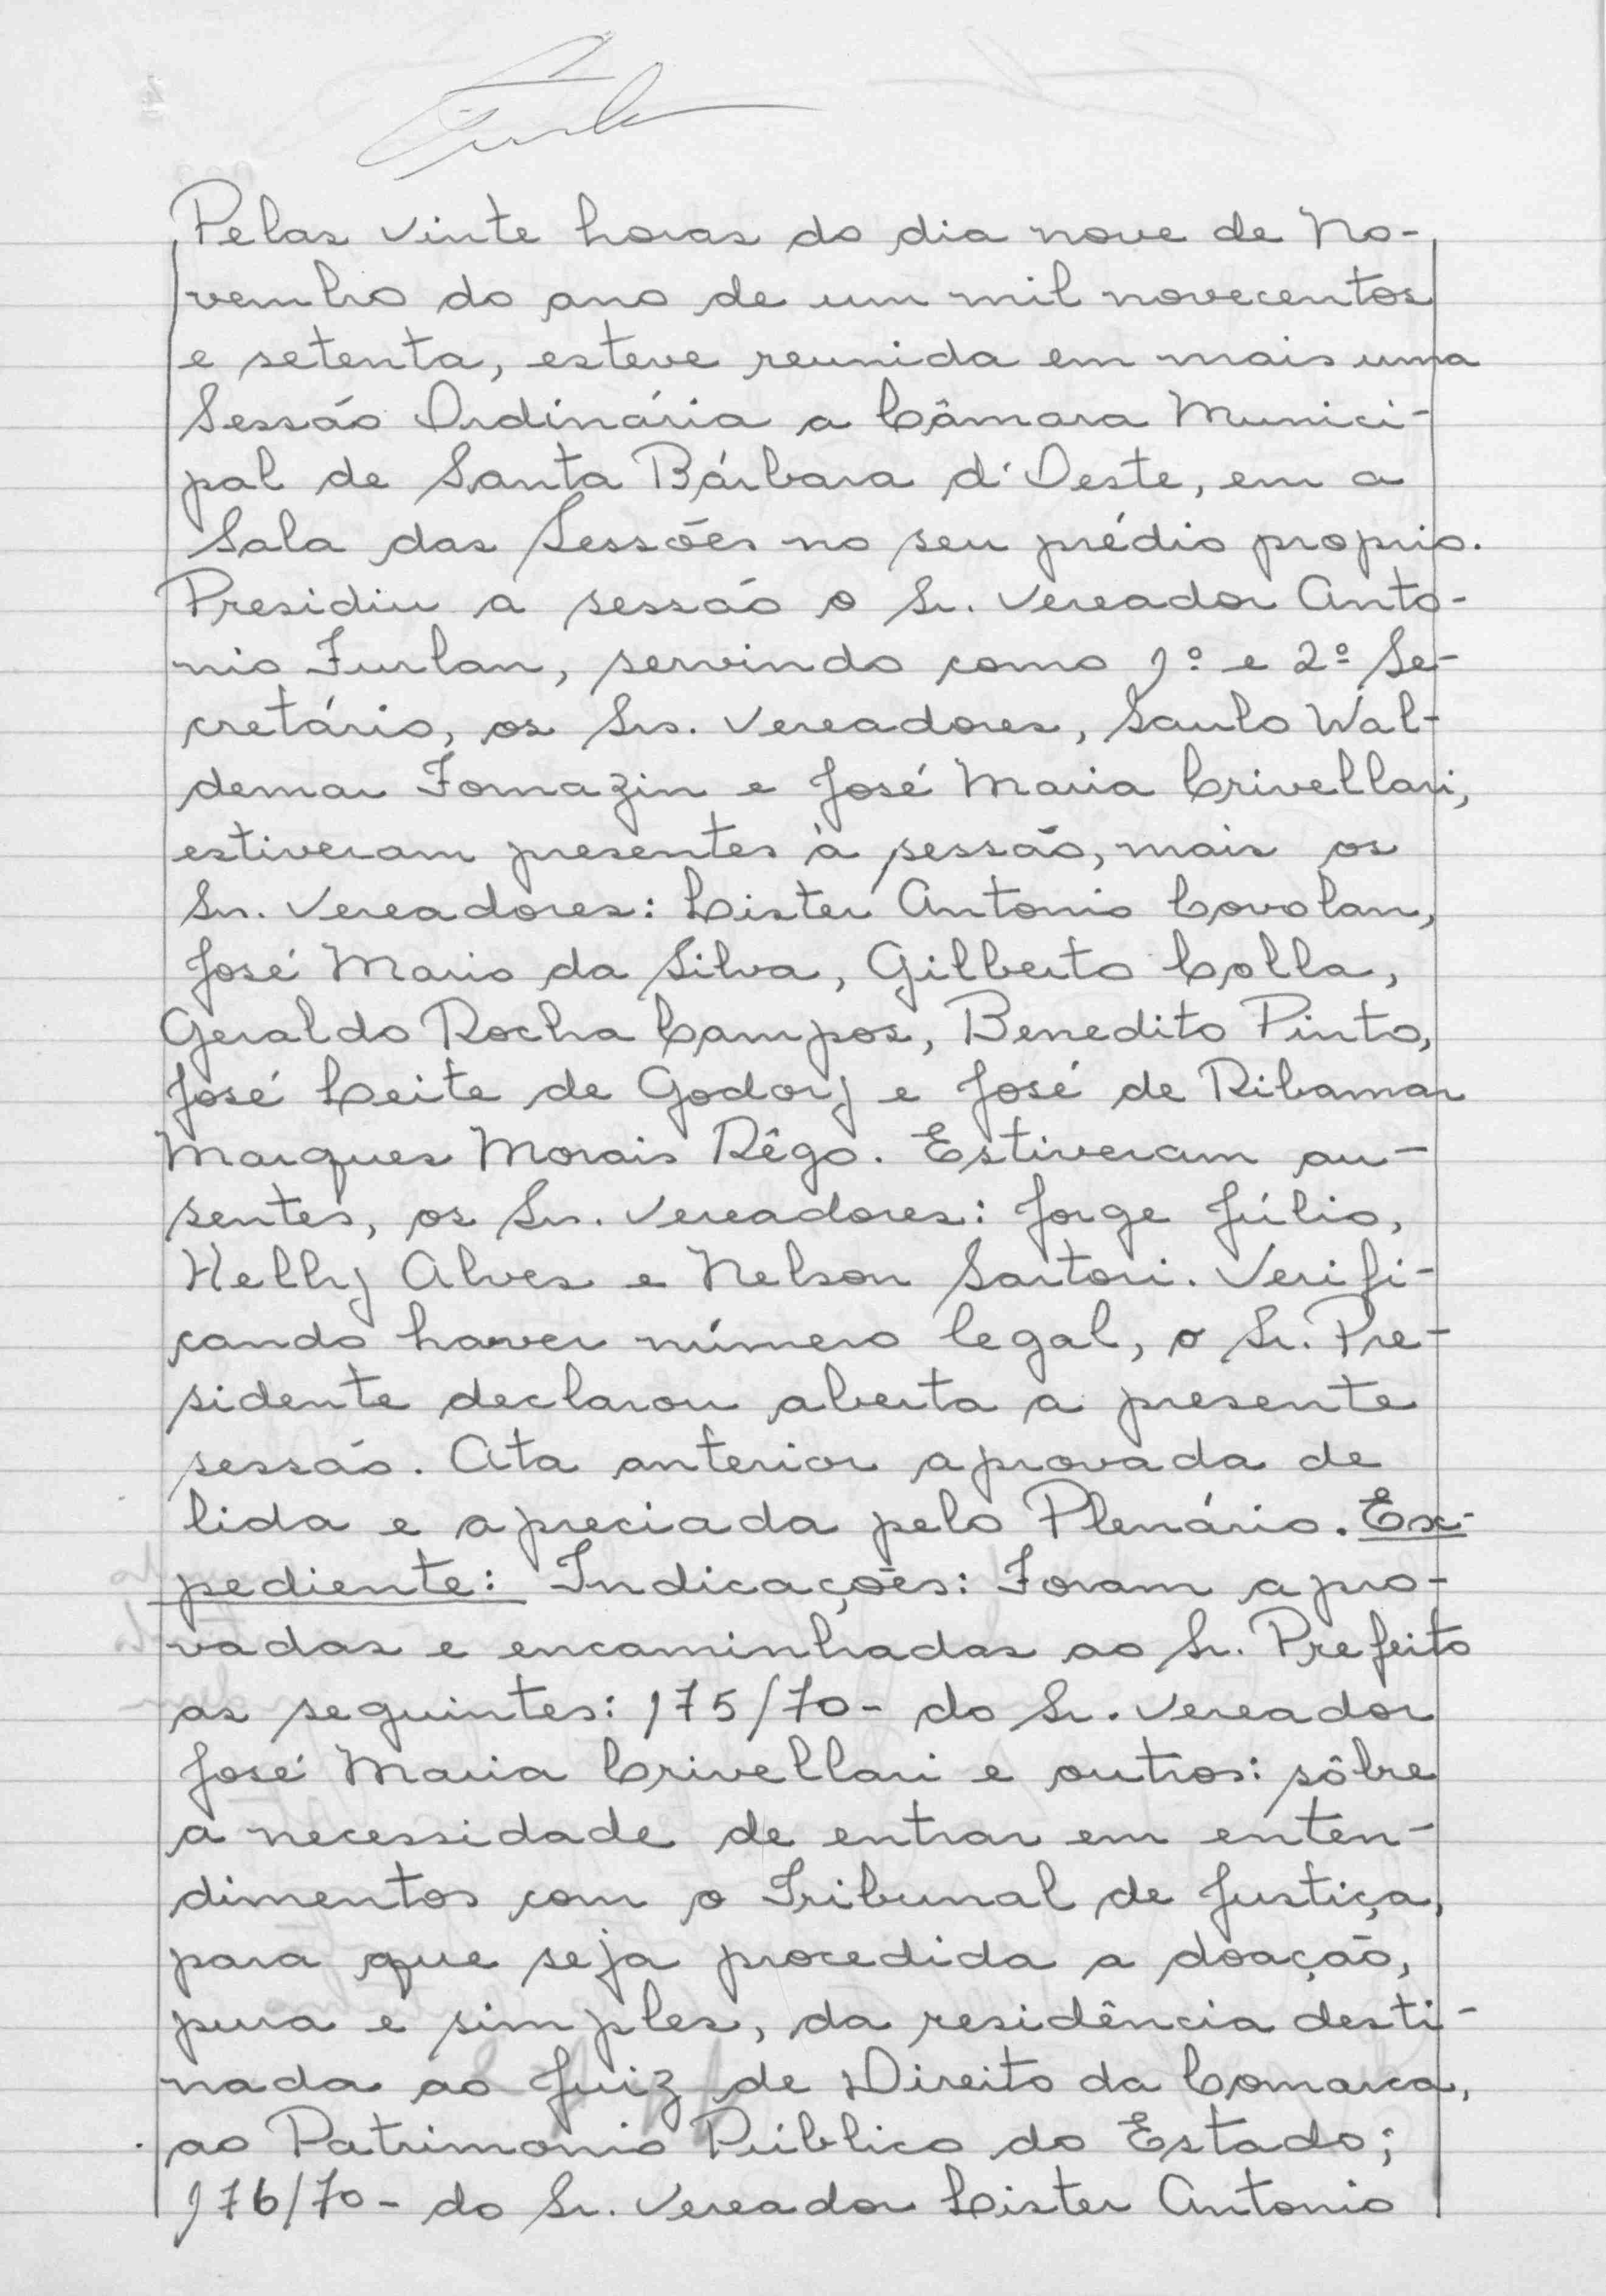 Pelas vinte horas do dia nove de No-
vembro do ano de um mil novecentos
e setenta, esteve reunida em mais uma
Sessão Ordinária a Câmara Munici-
pal de Santa Bárbara d'Oeste, em a
Sala das Sessões no seu prédio proprio.
Presidiu a sessão o Sr. Vereador Anto-
nio Furlan, servindo como 1º e 2º Se-
cretário, os Srs. Vereadores, Saulo Wal-
demar Fornazin e José Maria Crivellari,
estiveram presentes à sessão, mais os
Srs. Vereadores: Lister Antonio Covolan,
José Mario da Silva, Gilberto Colla,
Geraldo Rocha Campos, Benedito Pinto,
José Leite de Godoy e José de Ribamar
Marques Morais Rêgo. Estiveram au-
sentes, os Srs. Vereadores: Jorge Júlio,
Helly Alves e Nelson Sartori. Verifi-
cando haver número legal, o Sr. Pre-
sidente declarou aberta a presente
sessão. Ata anterior aprovada de
lida e apreciada pelo Plenário. Ex-
pediente: Indicações: Foram apro-
vadas e encaminhadas ao Sr. Prefeito
as seguintes: 175/70- do Sr. Vereador
José Maria Crivellari e outros: sôbre
a necessidade de entrar em enten-
dimentos com o Tribunal de Justiça,
para que seja procedida a doação,
pura e simples, da residência desti-
nada ao Juiz de Direito da Comarca,
ao Patrimonio Público do Estado;
176/70- do Sr. Vereador Lister Antonio